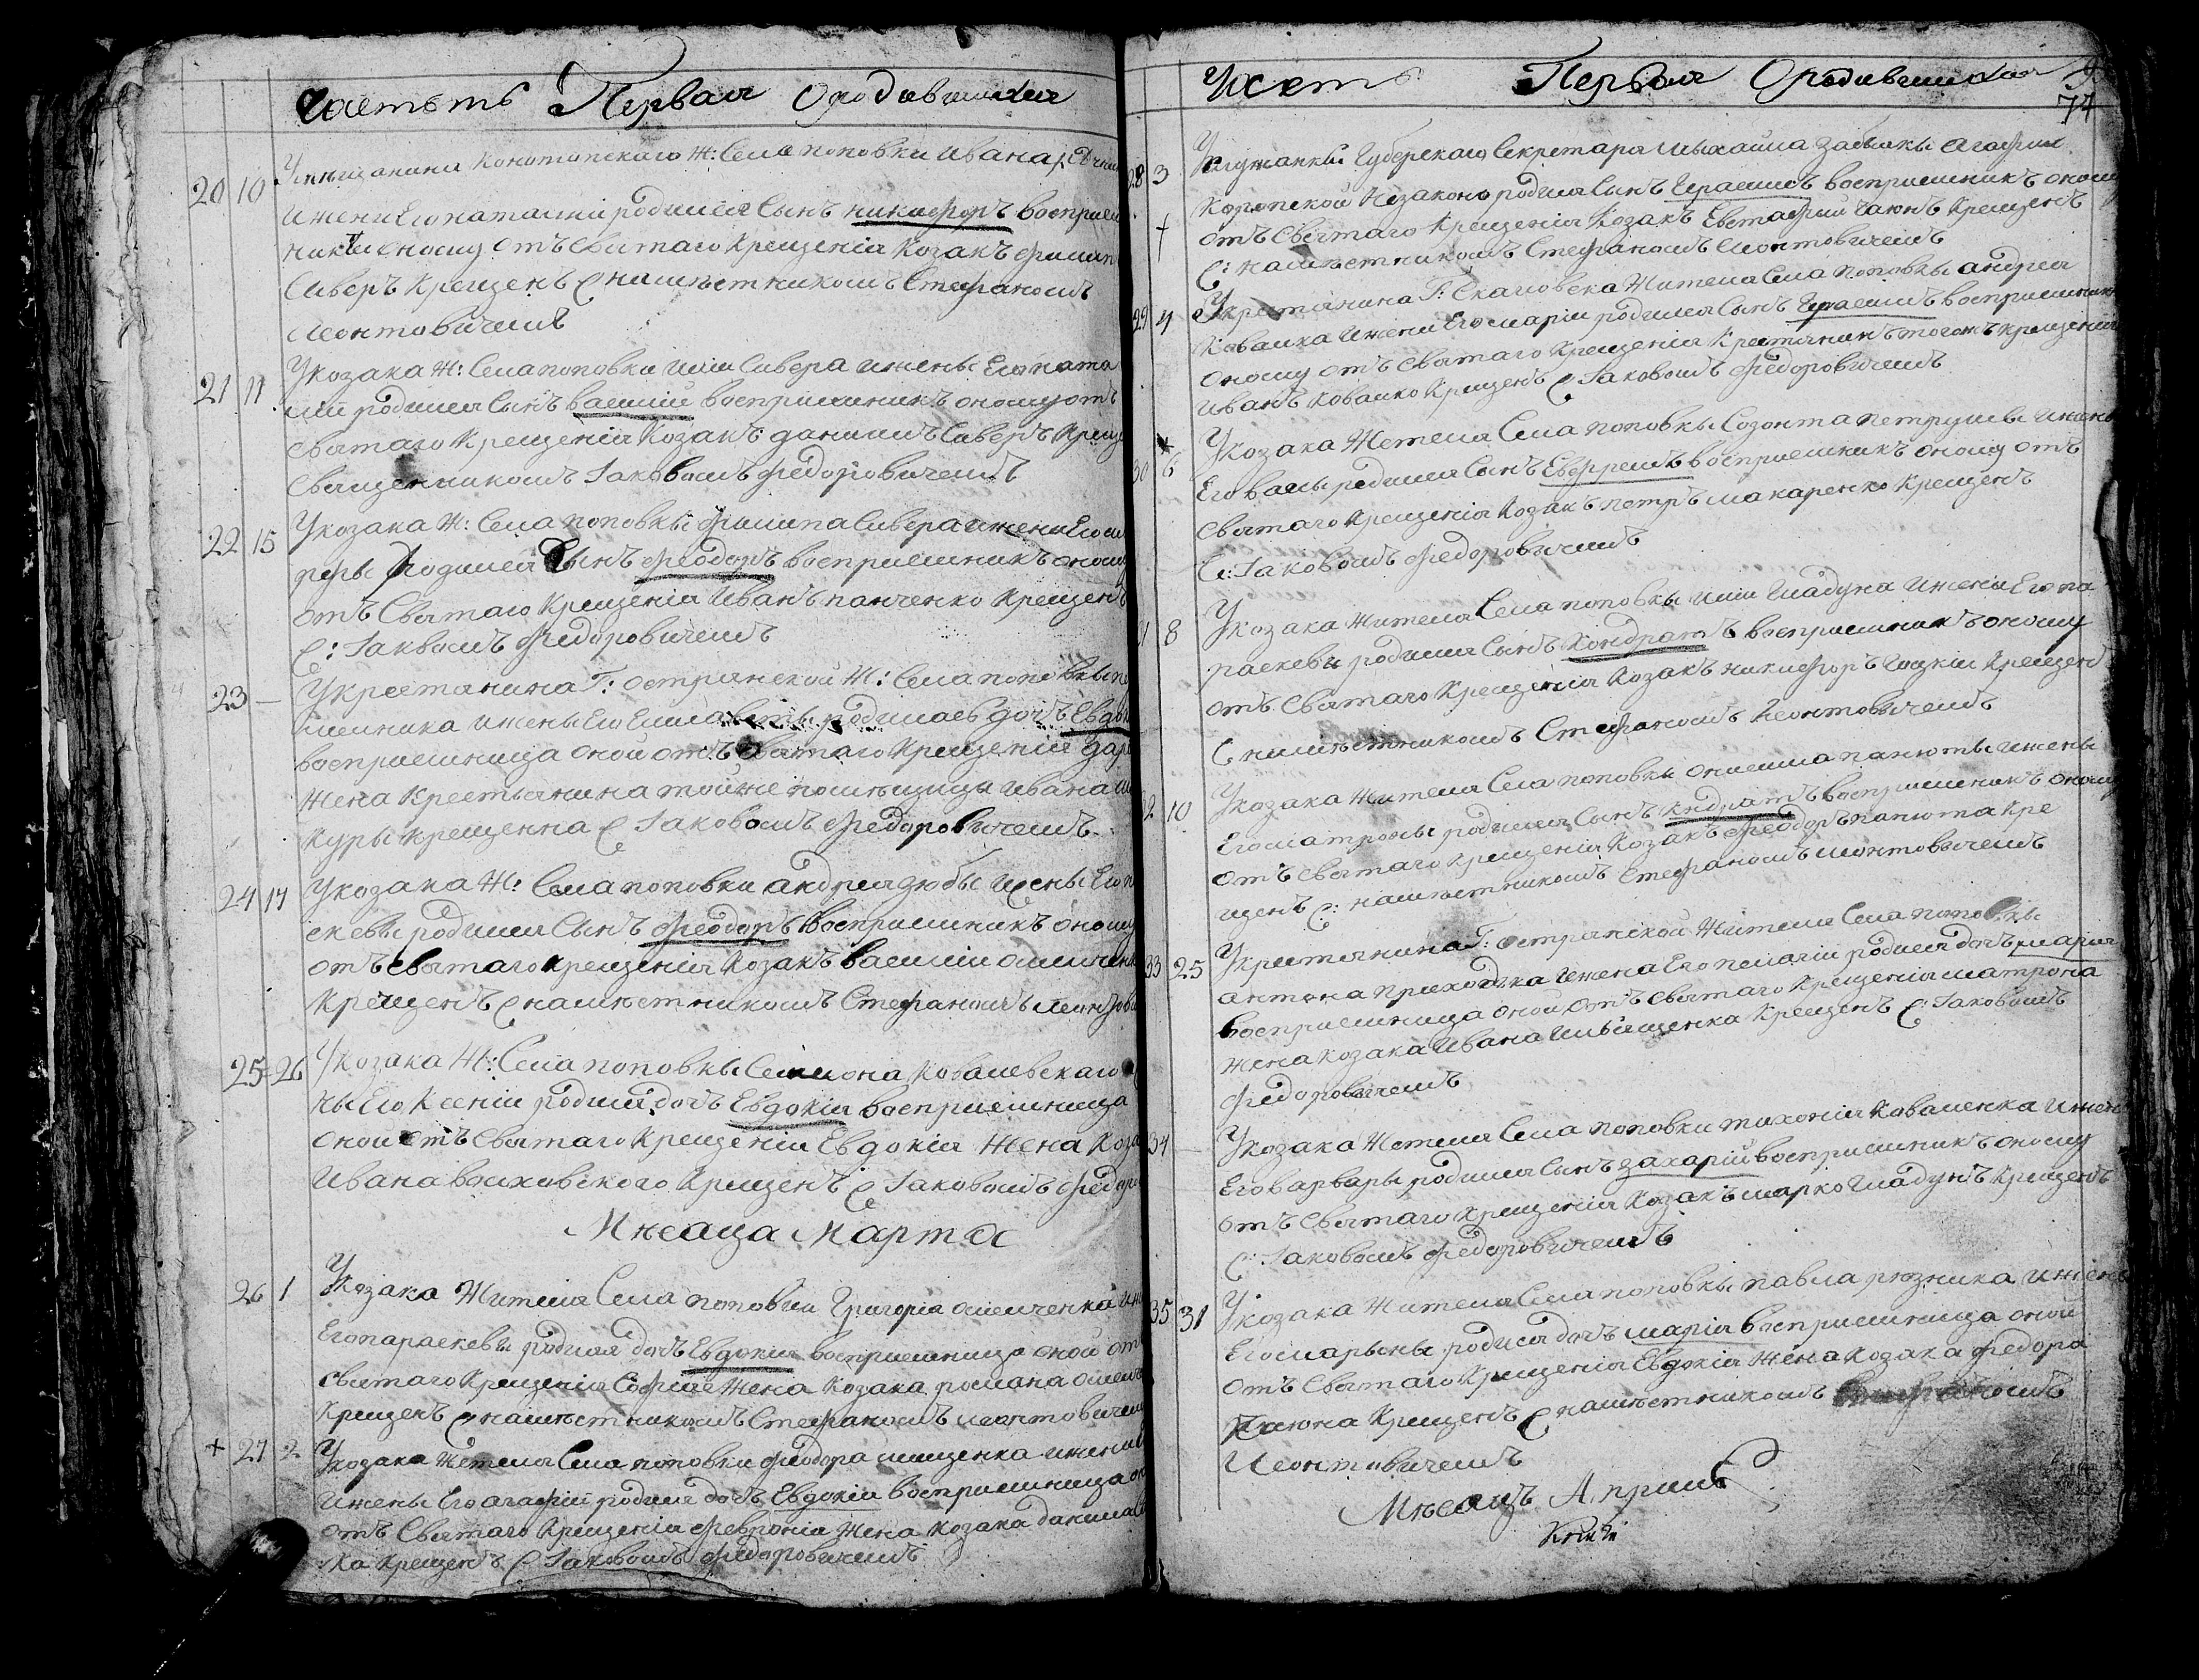 Часть Первая О родившихся
20 10 У мещанина Конотопскаго ж: села поповки Ивана
и жени Его наталіи родился сынъ никифоръ восприем
никъ оному отъ святаго крещенія козакъ филипъ
Сиверъ крещенъ С намѣстникомъ Стефаномъ
Леонтовичемъ
21 11 У козака ж: села поповки иліи Сивера и жены Его ната
лии родился сынъ василій восприемникъ оному отъ
святаго крещенія козакъ данилъ Сиверъ креще
священникомъ Іаковомъ федоровичемъ
22 15 У козака ж: села поповкы филипа Сивера и жени Его
родился сынъ феодоръ восприемникъ оному
отъ святаго крещенія Иванъ панченко крещенъ
С: Іаквомъ федоровичемъ
23 — У крестянина Г: острянской ж: села поповкы
и жены Его Елисаветы родилась дочъ Евдо
восприемница оной отъ святаго крещенія дар
жена крестьянина тойже помѣщицы Ивана
куры крещенна С Іаковомъ федоровичемъ
24 17 У козака ж: села поповки андрея дюбы и жены Его п
скевы родился сынъ феодоръ восприемникъ оному
отъ святаго крещенія козакъ василій омелченк
крещенъ С намѣстникомъ Стефаномъ леонтови
25 26 У козака ж: села поповкы Семиона ковалевскаго
ны Его Ксеніи родися дочъ Евдокія восприемница
оной отъ святаго крещеніи Евдокія жена коза
Ивана волховского крещенъ С Іаковомъ федоро
Мѣсаца Марта
26 1 У козака жителя села поповки Григорія омелченка и же
Его параскевы родися дочъ Евдокия восприемница оной от
святаго крещенія Софія жена козака романа омелч
крещенъ С намѣстникомъ Стефаномъ леонтовичем
+ 27 2 У козака жителя села поповки феодора мищенка
и жены Его агафіи родися дочъ Евдокіи восприемница он
отъ святаго крещеніи февронія жена козака данила
ка крещенъ С Іаковомъ федоровичемъ
Часть Первая О родившихся
74
28 3 Губерскаго секретара михаила забѣлы агафии
коропской незаконо родился сынъ Герасимъ восприемникъ оному
+ отъ святаго крещенія козакъ Евстафий крещенъ
С: намѣстникомъ Стефаномъ Леонтовичемъ
29 4 У крестянина Г: Скаловска жителя села поповкы андрея
ковалка и жени Его маріи родился сынъ Герасимъ восприемник
оному отъ святаго крещенія крестянинъ тогожъ крещенія
иванъ ковалко крещенъ С Іаковомъ федоровичемъ
30 6 У козака жителя села поповкы Созонта петруши и жены
Его родился сынъ Евфремъ восприемникъ оному отъ
святаго крещенія козакъ петръ макаренко крещенъ
С: Іаковомъ федоровичемъ
31 8 У козака жителя села поповкы иліи гладуна и женіи Его па
раскевы родился сынъ кондратъ восприемникъ оному
отъ святаго крещенія козакъ никифоръ крещен
С намѣстникомъ Стефаномъ Леонтовичемъ
32 10 У козака жителя села поповкы онисима панюты и жены
Его матроны родился сынъ кндратъ восприемникъ оному
отъ святаго крещенія козакъ феодоръ панюта кре
щенъ С: намѣстникомъ Стефаномъ леонтовичемъ
33 25 У крестянина Г: острянской жителя села поповкы
антона приходка и жена Его пелагіи родися дочъ марія
восприемница оной отъ святаго крещенія матрона
жена козака Ивана крещенъ С: Іаковомъ
федоровичемъ
34 — У козака жителя села поповки тихонія коваленка и жены
Его варвары родился сынъ захарій восприемникъ оному
отъ святаго крещенія козакъ марко гладунъ крещенъ
С: Іаковомъ федоровичемъ
35 31 У козака жителя села поповкы павла рюзника и жены
Его марыны родися дочъ марія восприемница оной
отъ святаго крещенія Евдокія жена козака федора
крещенъ С намѣстникомъ Стефаномъ
Леонтовичемъ
Мѣсяцъ Априль